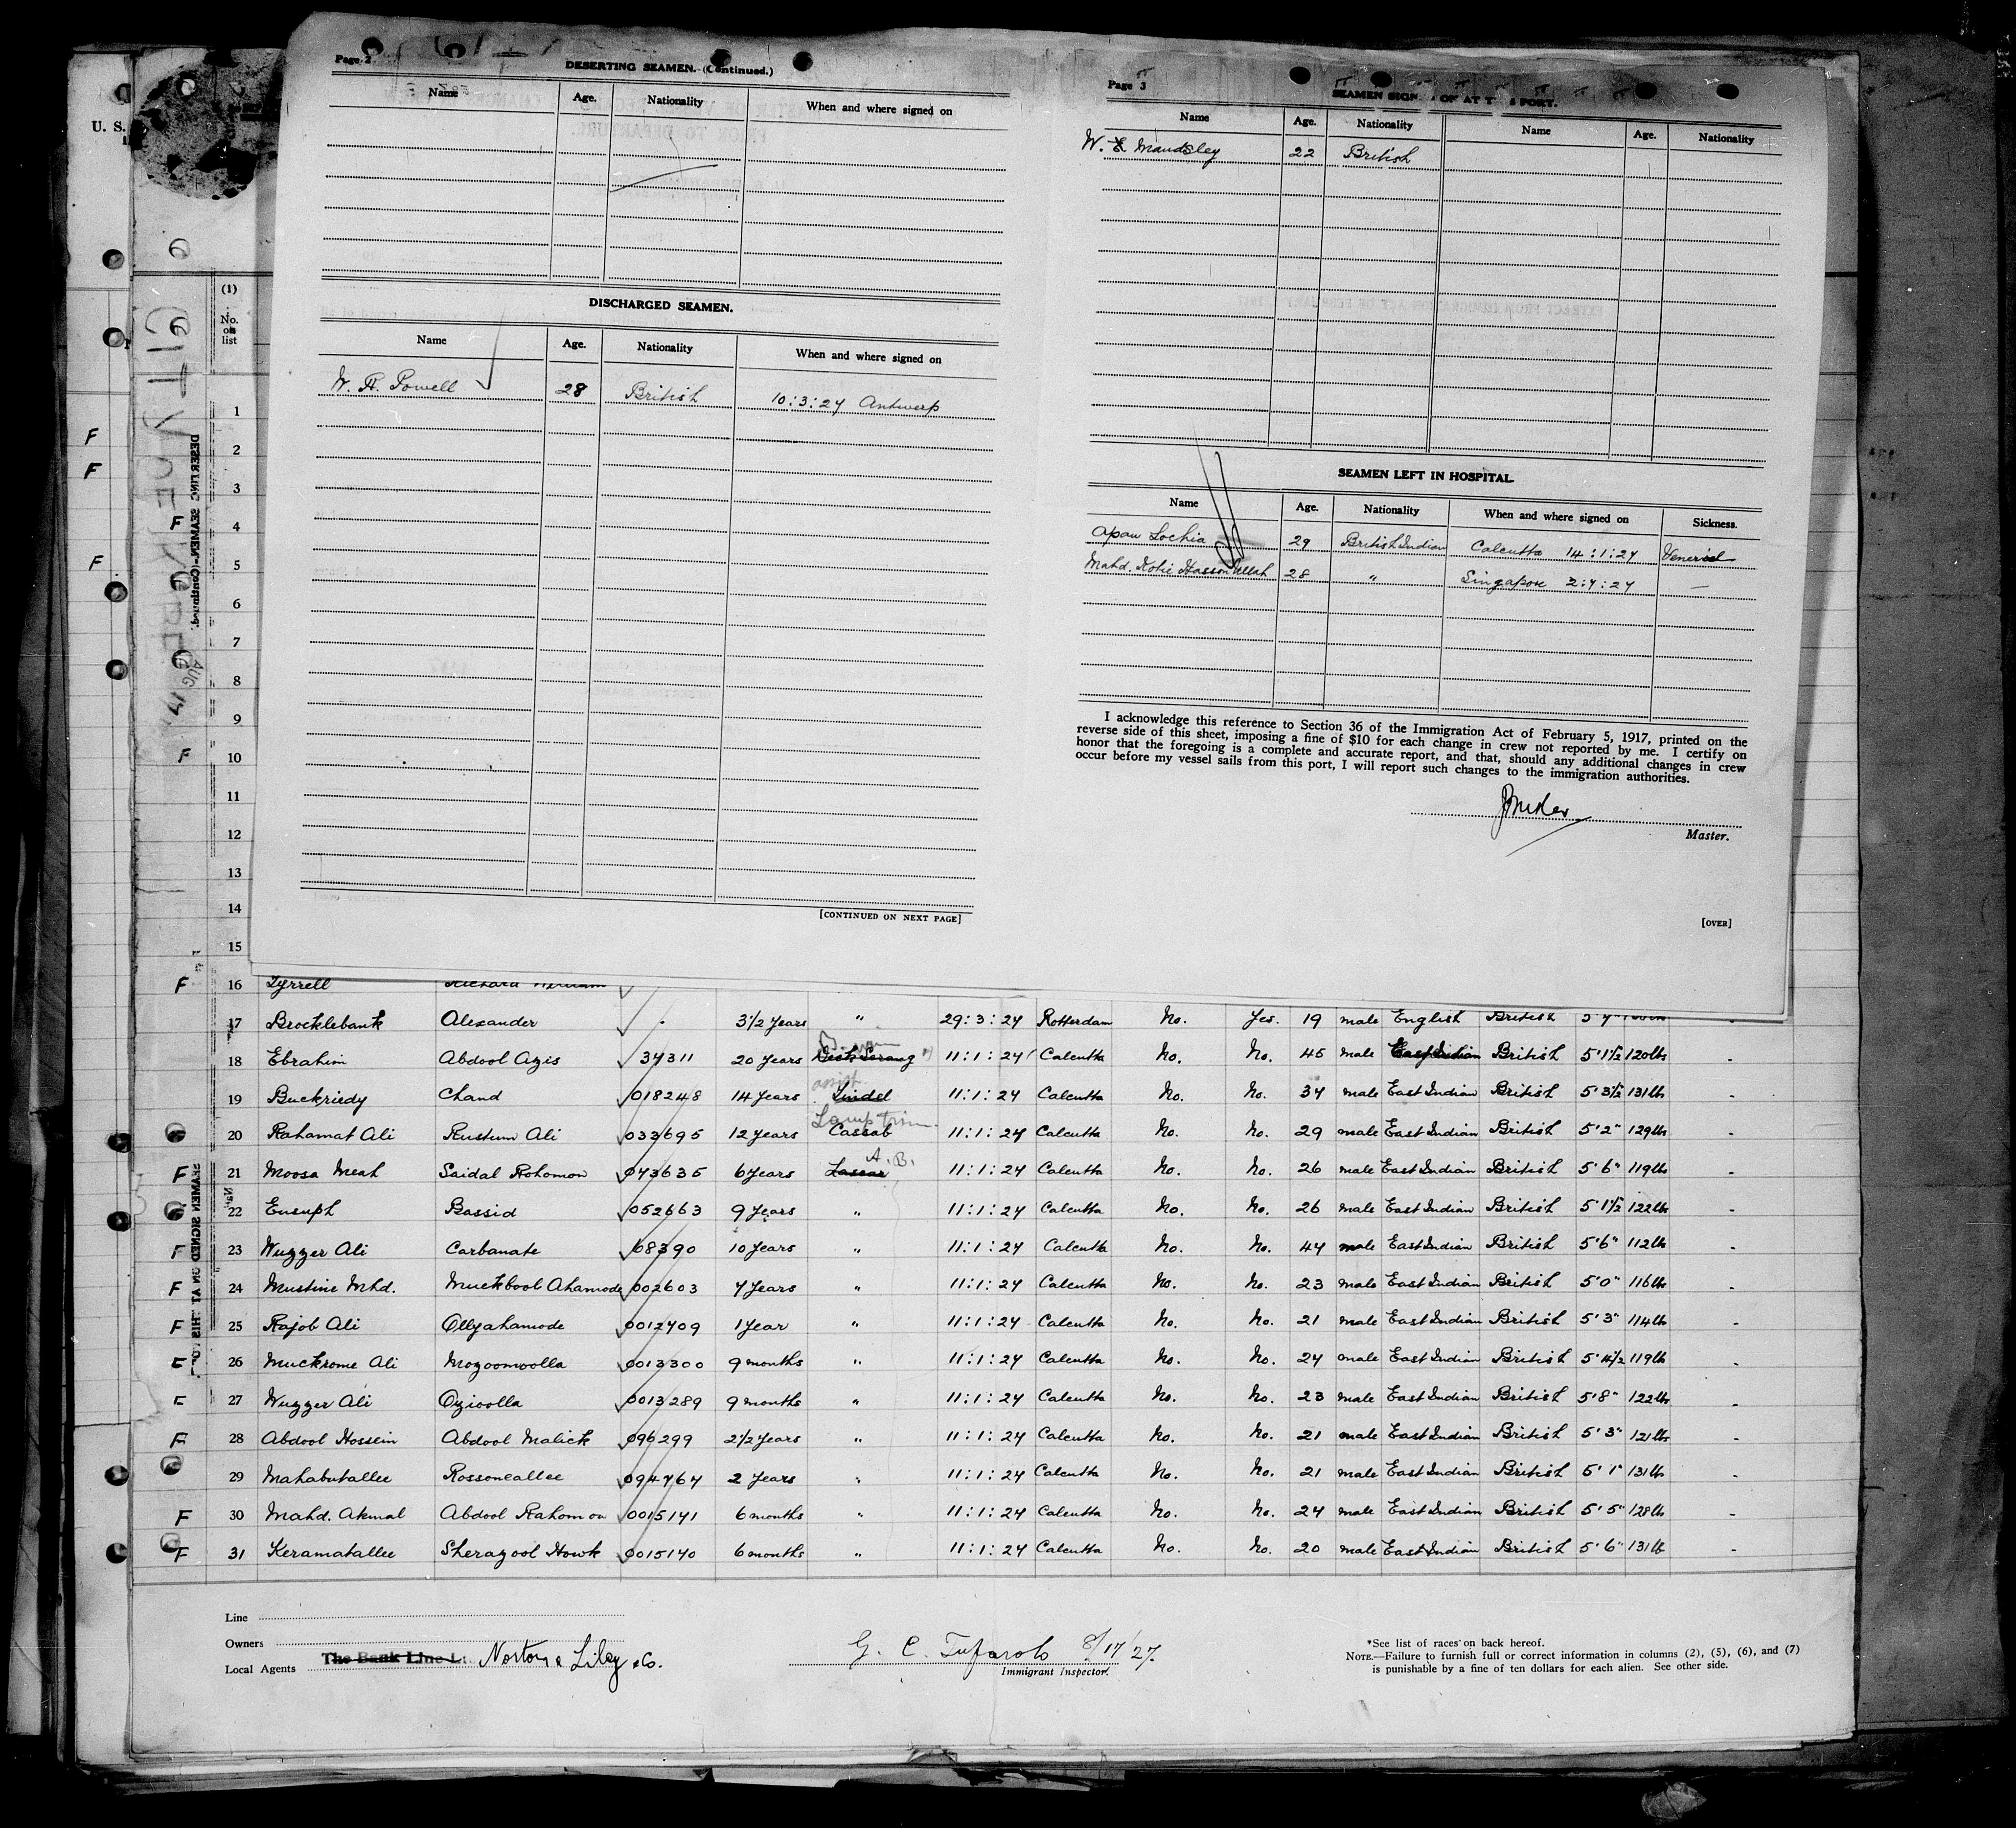 Page 2
DESERTING SEAMEN. (Continued.)
Name Age. Nationality When and where signed on
DISCHARGED SEAMEN.
Name Age. Nationality When and where signed on
W. H. Powell 28 British 10:3:27 Antwerp
[CONTINUED ON NEXT PAGE]
Page 3
SEAMEN SIGN OF AT T S PORT.
Name Age. Nationality Name Age. Nationality
W. E. Maudsley 22 British
SEAMEN LEFT IN HOSPITAL.
Name Age. Nationality When and where signed on Sickness.
Apau Lochia 29 British Indian Calcutta 14:1:27 Venerial
Mahd. Kobie Hasson Ullah 28 " Singapore 2:7:27 —
I acknowledge this reference to Section 36 of the Immigration Act of February 5, 1917, printed on the
reverse side of this sheet, imposing a fine of $10 for each change in crew not reported by me. I certify on
honor that the foregoing is a complete and accurate report, and that, should any additional changes in crew
occur before my vessel sails from this port, I will report such changes to the immigration authorities.
Master.
[OVER]
U. S.
(1)
No.
on
list
1
F 2
F 3
F 4
F 5
6
7
8
9
F 10
11
12
13
14
15
F 16 Tyrrell Richard William
17 Brocklebank Alexander 3 1/2 Years " 29:3:27 Rotterdam No. Yes. 19 male English British
18 Ebrahim Abdool Azis 37311 20 Years Deck Serang 11:1:27 Calcutta No. No. 45 male East Indian British 5'1 1/2 120lbs -
assist
19 Buckriedy Chand 018248 14 Years Tindel 11:1:27 Calcutta No. No. 34 male East Indian British 5'3 1/2 131lb -
Lamp Trim
20 Rahamat Ali Rustum Ali 033695 12 Years Cassab 11:1:27 Calcutta No. No. 29 male East Indian British 5'2" 129lb -
A.B.
F 21 Moosa Meah Saidal Rohomon 043635 6 Years Lascar 11:1:27 Calcutta No. No. 26 male East Indian British 5'6" 119lb -
22 Eusuph Bassid 052663 9 Years " 11:1:27 Calcutta No. No. 26 male East Indian British 5'1 1/2 122lb -
F 23 Wuzzer Ali Carbanate 08390 10 Years " 11:1:27 Calcutta No. No. 44 male East Indian British 5'6" 112lb -
F 24 Mustine Mhd. Muckbool Ahamode 002603 7 Years " 11:1:27 Calcutta No. No. 23 male East Indian British 5'0" 116lb -
F 25 Rajob Ali Ollyahamode 0012709 1 Year " 11:1:27 Calcutta No. No. 21 male East Indian British 5'3" 114lb -
F 26 Muckrome Ali Mozoomoolla 0013300 9 months " 11:1:27 Calcutta No. No. 24 male East Indian British 119lb -
F 27 Wuzzer Ali Ozioolla 0013289 9 months " 11:1:27 Calcutta No. No. 23 male East Indian British 5'8" 122lb -
F 28 Abdool Hossein Abdool Malick 096299 2 1/2 Years " 11:1:27 Calcutta No. No. 21 male East Indian British 5'3" 121lb -
29 Mahabutallee Rossoneallee 094767 2 Years " 11:1:27 Calcutta No. No. 21 male East Indian British 5'1" 131lb -
F 30 Mahd. Akmal Abdool Rahomon 0015141 6 months " 11:1:27 Calcutta No. No. 24 male East Indian British 5'5" 128lb -
F 31 Keramatallee Sherazool Howk 0015140 6 months " 11:1:27 Calcutta No. No. 20 male East Indian British 5'6" 131lb -
Line
Owners
Local Agents The Bank Line Norton & Lilly & Co.
G. C. Tufarolo 8/17/27.
Immigrant Inspector.
*See list of races on back hereof.
NOTE.—Failure to furnish full or correct information in columns (2), (5), (6), and (7)
is punishable by a fine of ten dollars for each alien. See other side.